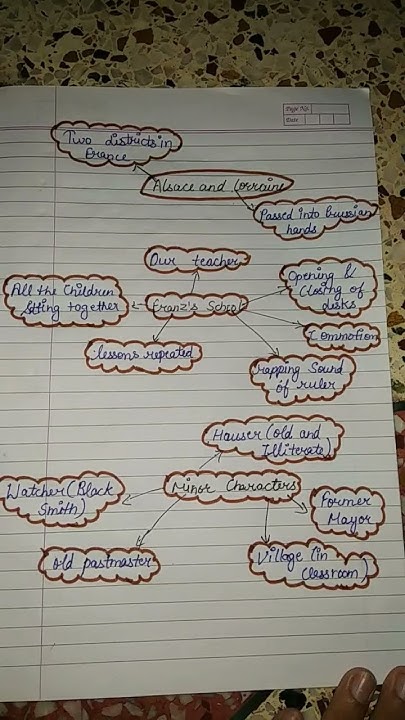 Page No.
Date
Two districts in
France
Alsace and Lorrain
Passed into Prussian
hands
Our teacher
Opening &
Closing of
disks
All the Children
sitting together
Franz's School
Commotion
lessons repeated
Rapping Sound
of ruler
Hauser (old and
Illiterate)
Watcher (Black
Smith)
Minor Characters
Former
Mayor
old postmaster
Village (in
classroom)